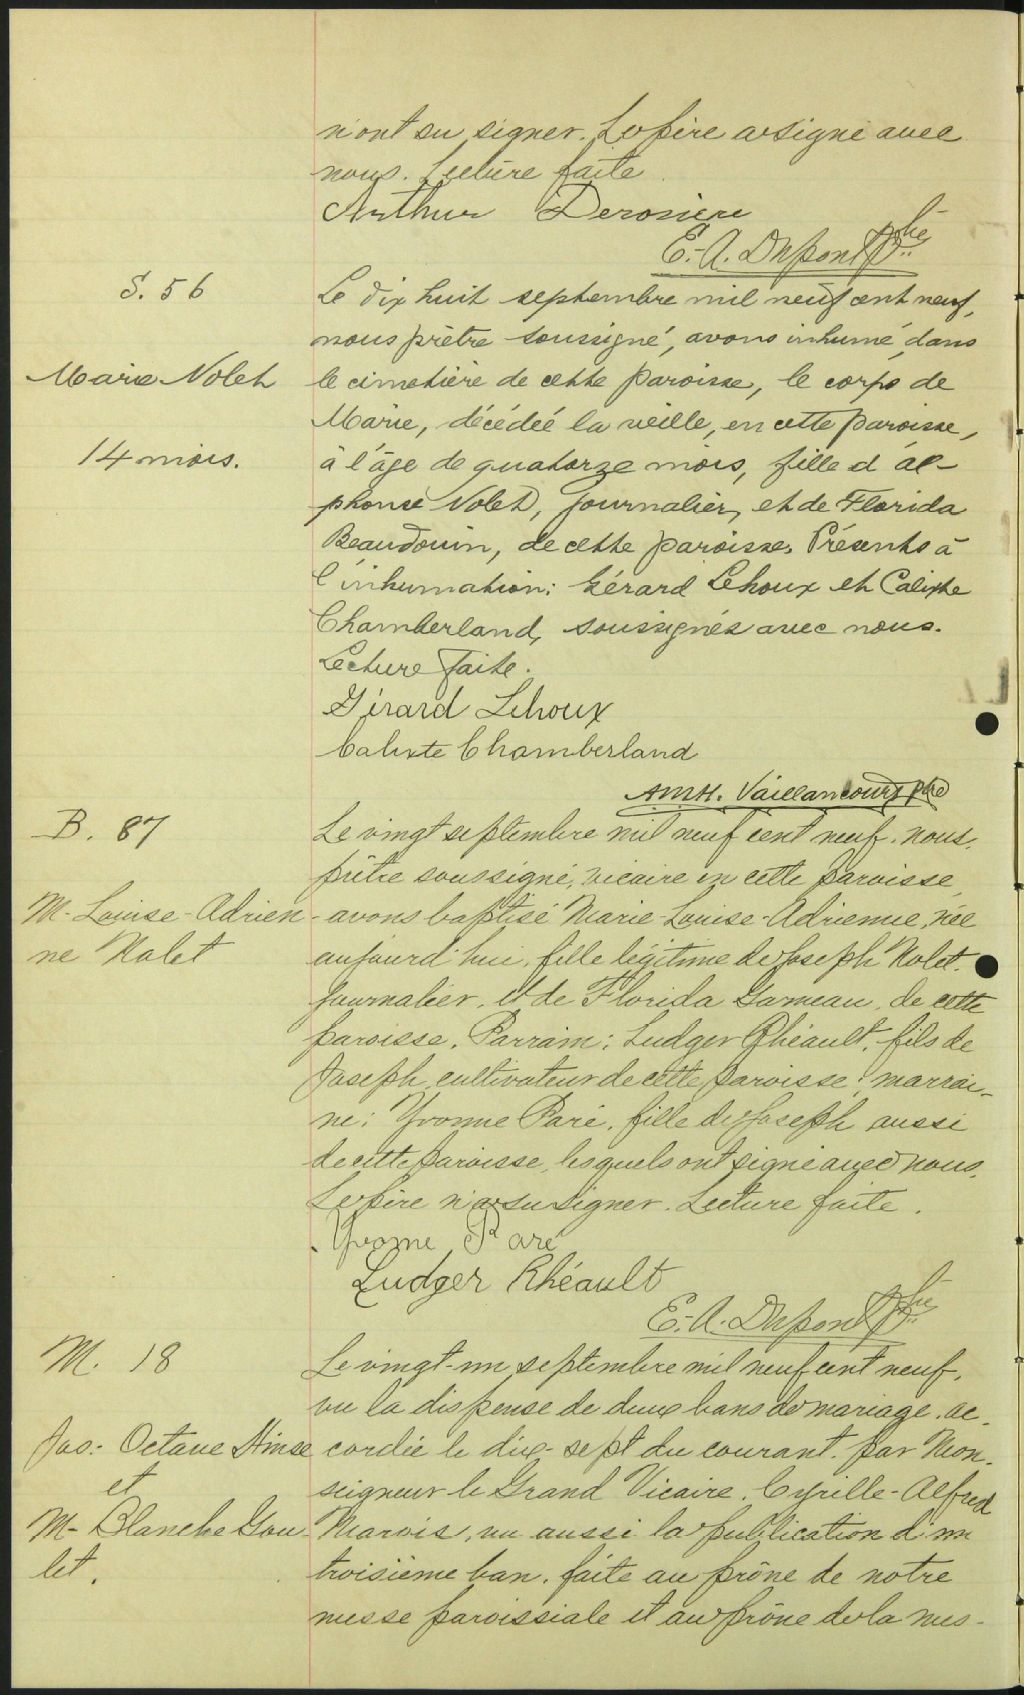 n'ont su signer. Le père a signé avec
nous. Lecture faite.
Arthur Derosiere
E.-A. Dupont Ptre
S. 56
Marie Nolet
14 mois.
Le dix huit septembre mil neuf cent neuf,
nous prêtre soussigné, avons inhumé, dans
le cimetière de cette paroisse, le corps de
Marie, décédée la veille, en cette paroisse,
à l'âge de quatorze mois, fille d'Al-
phonse Nolet, journalier, et de Florida
Beaudouin, de cette paroisse. Présents à
l'inhumation: Gérard Lehoux et Calixte
Chamberland, soussignés avec nous.
Lecture faite.
Gérard Lehoux
Calixte Chamberland
Vaillancourt ptre
B. 87
M.-Louise-Adrien-
ne Nolet
Le vingt septembre mil neuf cent neuf, nous,
prêtre soussigné, vicaire en cette paroisse,
avons baptisé Marie-Louise-Adrienne, née
aujourd'hui, fille légitime de Joseph Nolet,
journalier, et de Florida Garneau, de cette
paroisse. Parrain: Ludger Rhéault, fils de
Joseph, cultivateur de cette paroisse; marrai-
ne: Yvonne Paré, fille de Joseph aussi
de cette paroisse, lesquels ont signé avec nous.
Le père n'a su signer. Lecture faite.
Yvonne Paré
Ludger Rhéault
E.-A. Dupont Ptre
M. 18
Jos.-Octave Hinse
et
M-Blanche Gou-
let.
Le vingt-un septembre mil neuf cent neuf,
vu la dispense de deux bans de mariage, ac-
cordée le dix-sept du courant, par Mon-
seigneur le Grand Vicaire, Cyrille-Alfred
Marois, vu aussi la publication d'un
troisième ban, faite au prône de notre
messe paroissiale et au prône de la mes-